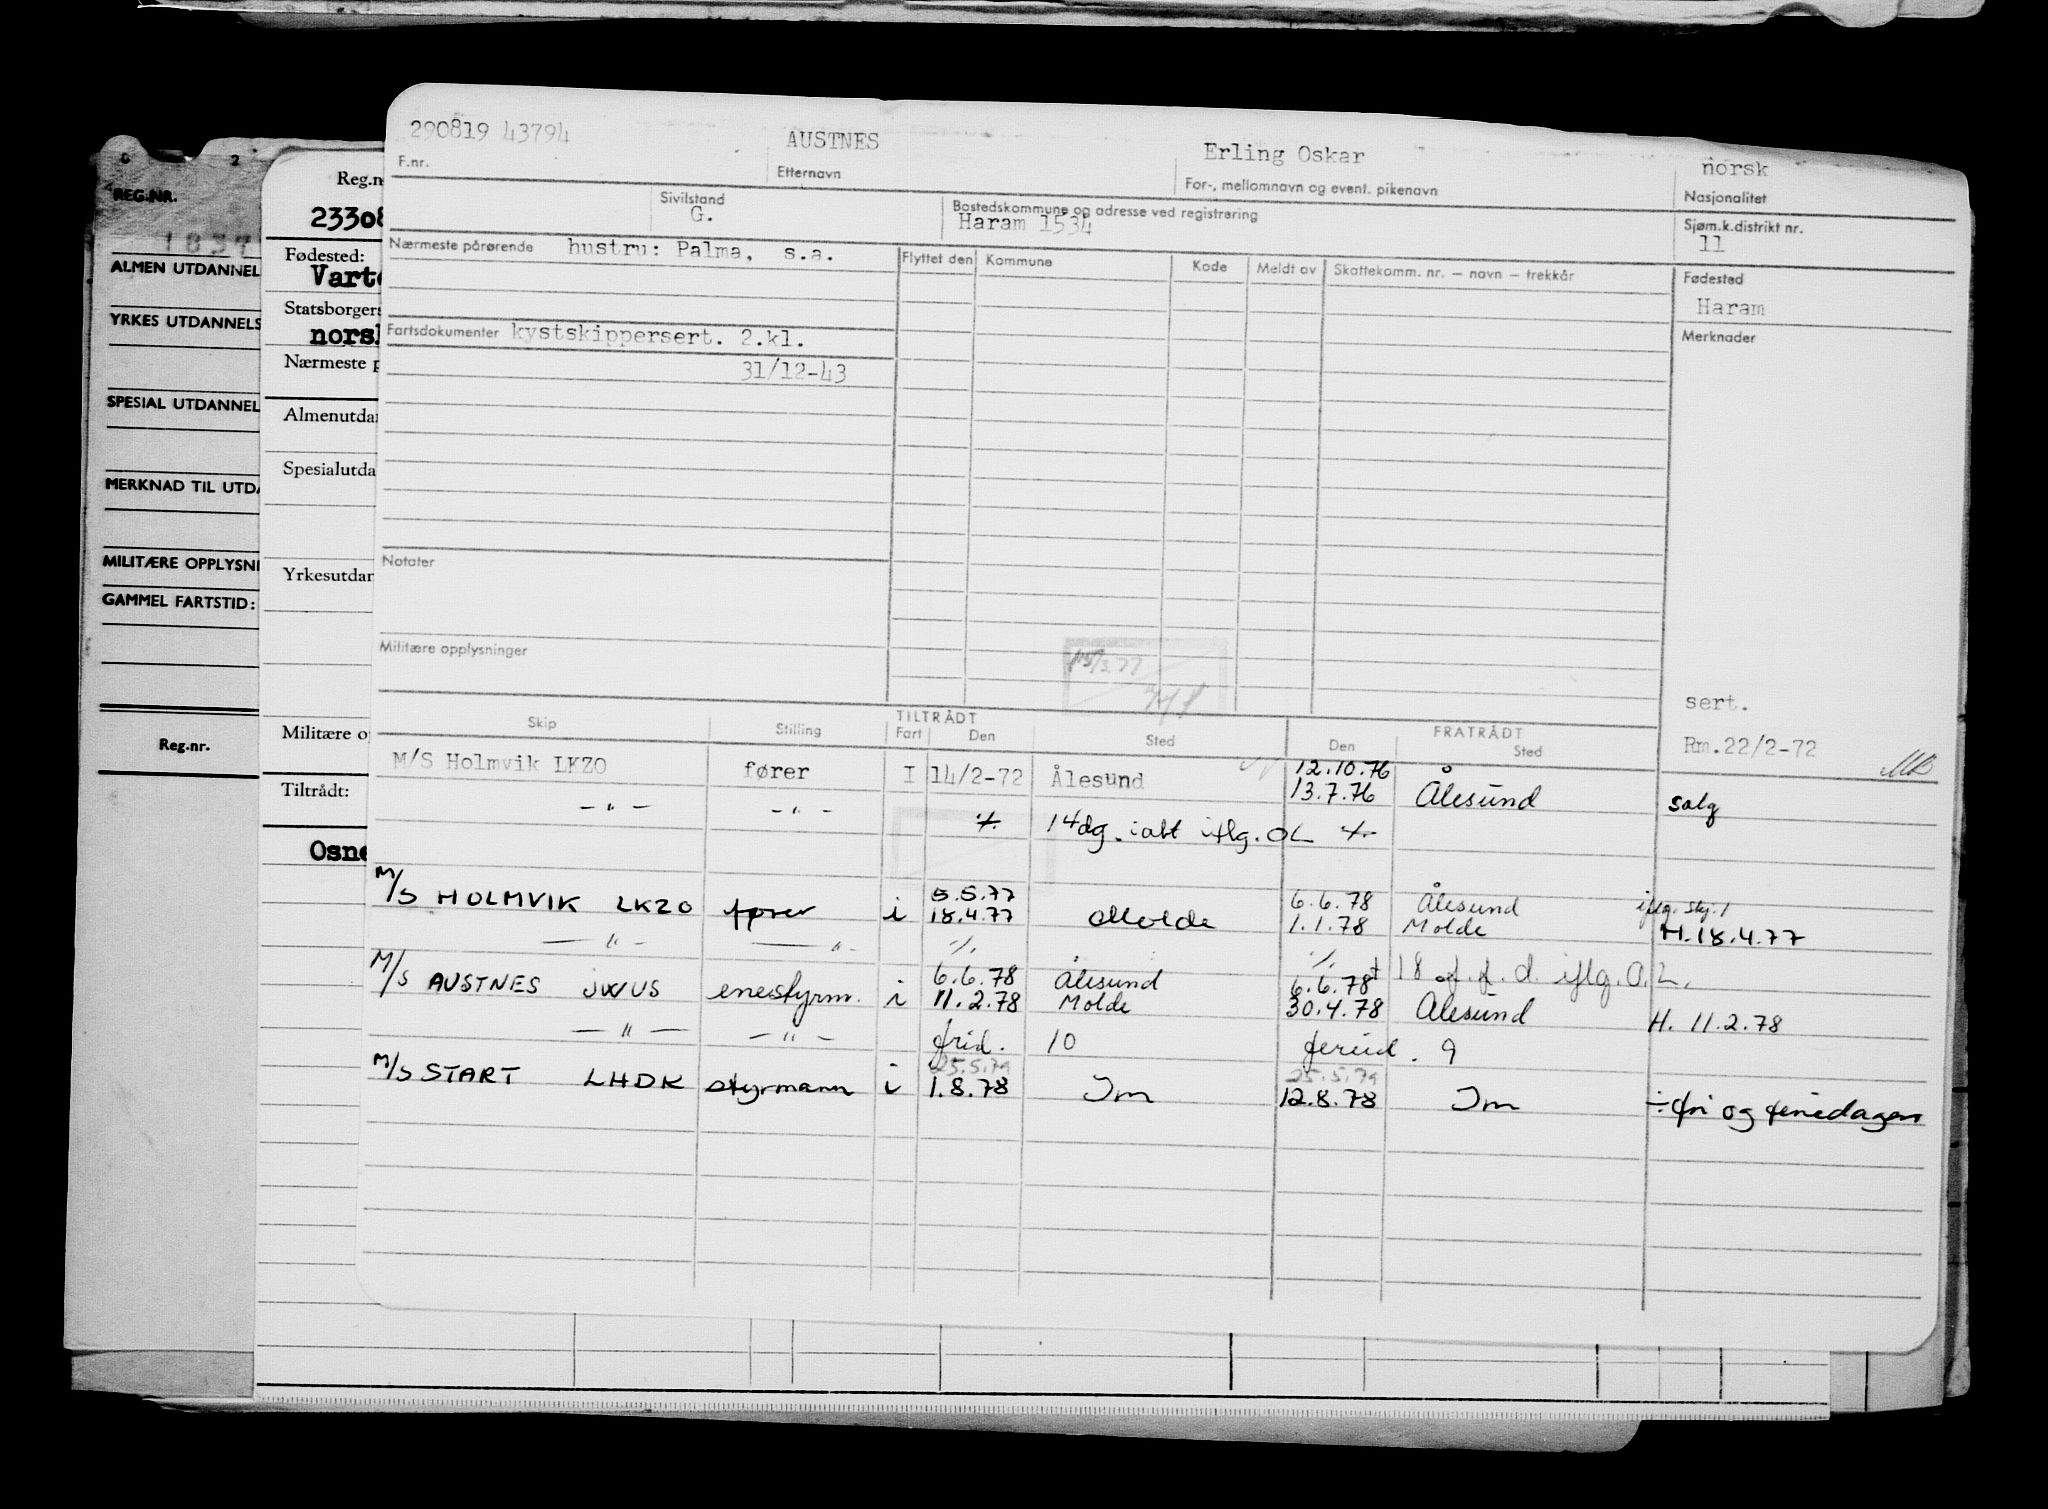 290819 43794 AUSTNES Erling Oskar norsk
F.nr. Etternavn For-, mellomnavn og event. pikenavn Nasjonalitet
Sivilstand Bostedskommune og adresse ved registrering Sjøm.k.distrikt nr.
G. Haram 1534 11
Nærmeste pårørende hustru: Palma, s.a. Flyttet den Kommune Kode Meldt av Skattekomm. nr. – navn – trekkår Fødested
Haram
Fartsdokumenter kystskippersert. 2.kl. Merknader
31/12-43
Notater
Militære opplysninger
sert.
Skip Stilling TILTRÅDT FRATRÅDT
Fart Den Sted Den Sted
Rm.22/2-72
M/S Holmvik LKZO fører I 14/2-72 Ålesund 12.10.76
13.7.76 Ålesund salg
— " — — " — 14dg. iflg. OL
5.5.77 6.6.78 Ålesund iflg. Skj. 1
M/S HOLMVIK LKZO fører i 18.4.77 Molde 1.1.78 Molde H. 18.4.77
— " — — " — ./. ./. + 18 f.f.d. iflg. O.L.
6.6.78 Ålesund 6.6.78
M/S AUSTNES JWUS enestyrm. i 11.2.78 Molde 30.4.78 Ålesund H. 11.2.78
— " — — " — frid. 10 feried. 9
25.5.79 25.5.79
M/S START LHDK styrmann i 1.8.78 Jm 12.8.78 Jm ÷ fri og feriedager
REG.NR.
ALMEN UTDANNEL
YRKES UTDANNELS
SPESIAL UTDANNEL
MERKNAD TIL UTDA
MILITÆRE OPPLYSNI
GAMMEL FARTSTID:
Reg.nr.
Reg.n
23308
Fødested:
Varte
Statsborgers
norsk
Nærmeste p
Almenutdan
Spesialutda
Yrkesutdan
Militære o
Tiltrådt:
Osne